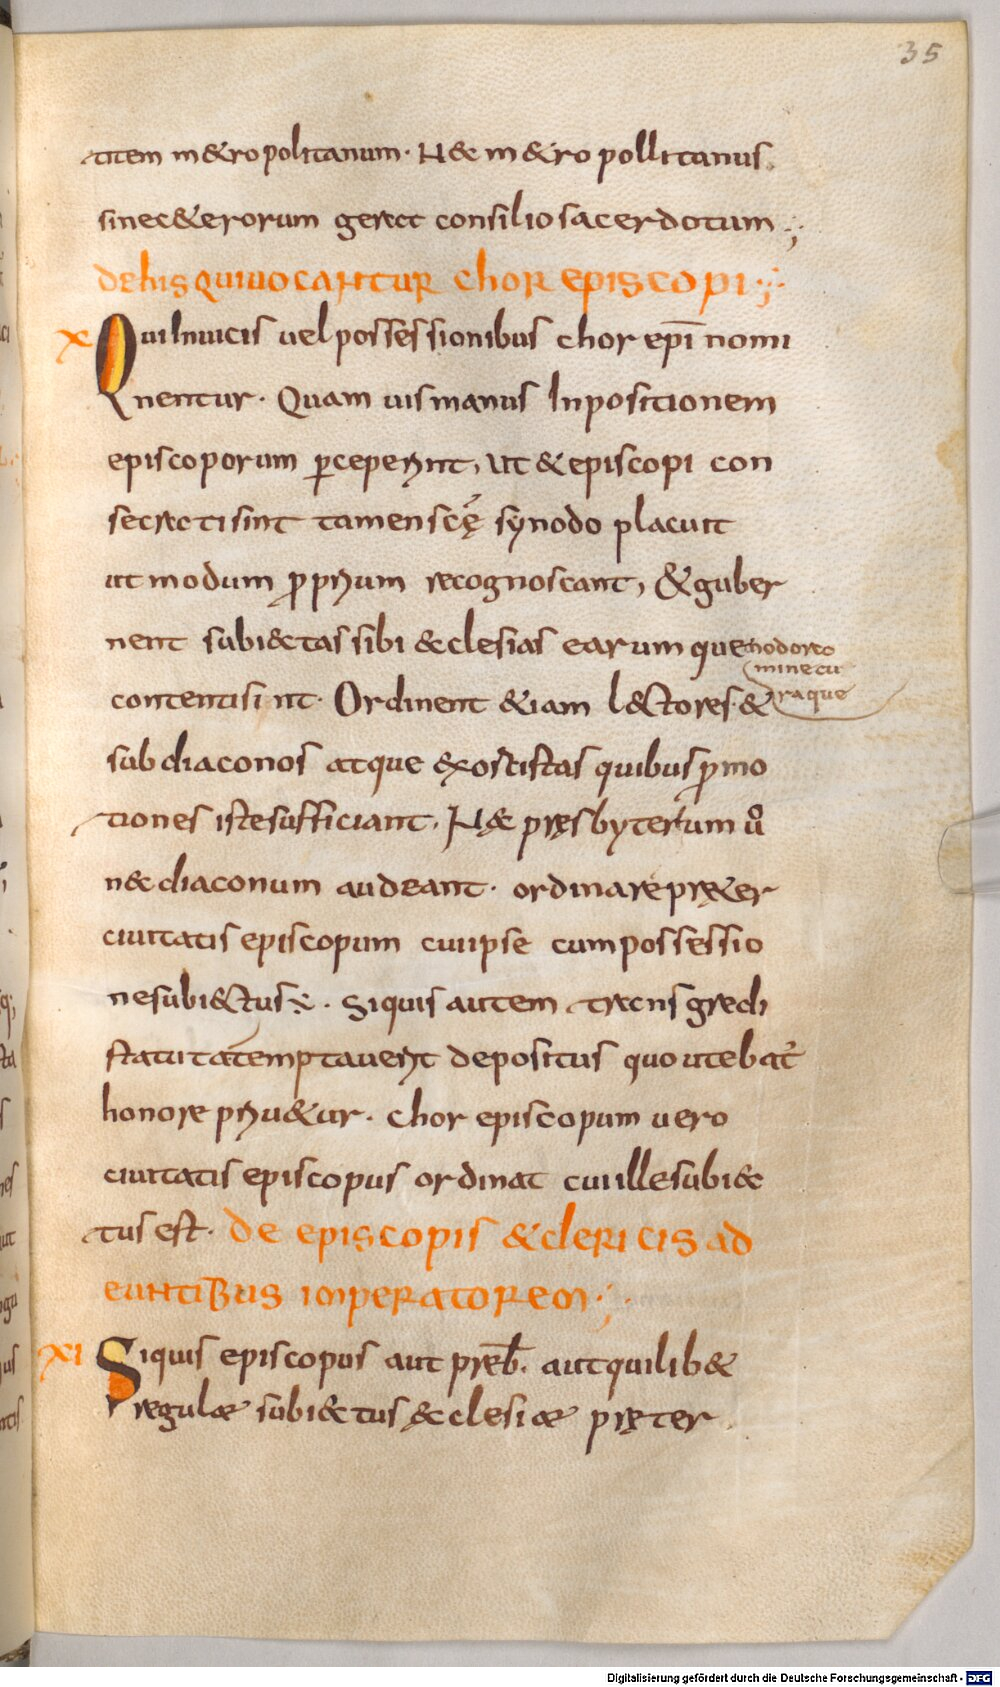 35
titem m&ropolitanum. N&c m&ropollitanus.
sinec&erorum gerat consilio sacerdotum;
de his qui uocantur chor episcopi
X Qui in uicis uel possessionibus chor epī nomi
nentur. Quam uis manus Inpositionem
episcoporum ꝑceperint, ut & episcopi con
secrati sint tamen scę synodo placuit
ut modum ꝓprium recognoscant, & guber
nent subi&tas sibi &clesias earum que modera
mine cu
raque
contenti sint. Ordinent &iam l&tores &
subdiaconos atque exorcistas quibus ꝓmo
tiones iste sufficiant. N&c pręsbyterum uo
n&c diaconum audeant. ordinare pręt&er
ciuitatis episcopum cui ipse cum possessio
ne subi&tus. Siquis autem transgredi
statuta temptauerit depositus quo utebat
honore priu&ur. chor episcopum uero
ciuitatis episcopus ordinat cui ille subi&c
tus est. de episcopis & clericis ad
euntibus imperatorem;
XI Siquis episcopus aut presb. aut quilib&
regulae subi&ctus &clesiae pręter
Digitalisierung gefördert durch die Deutsche Forschungsgemeinschaft - DFG